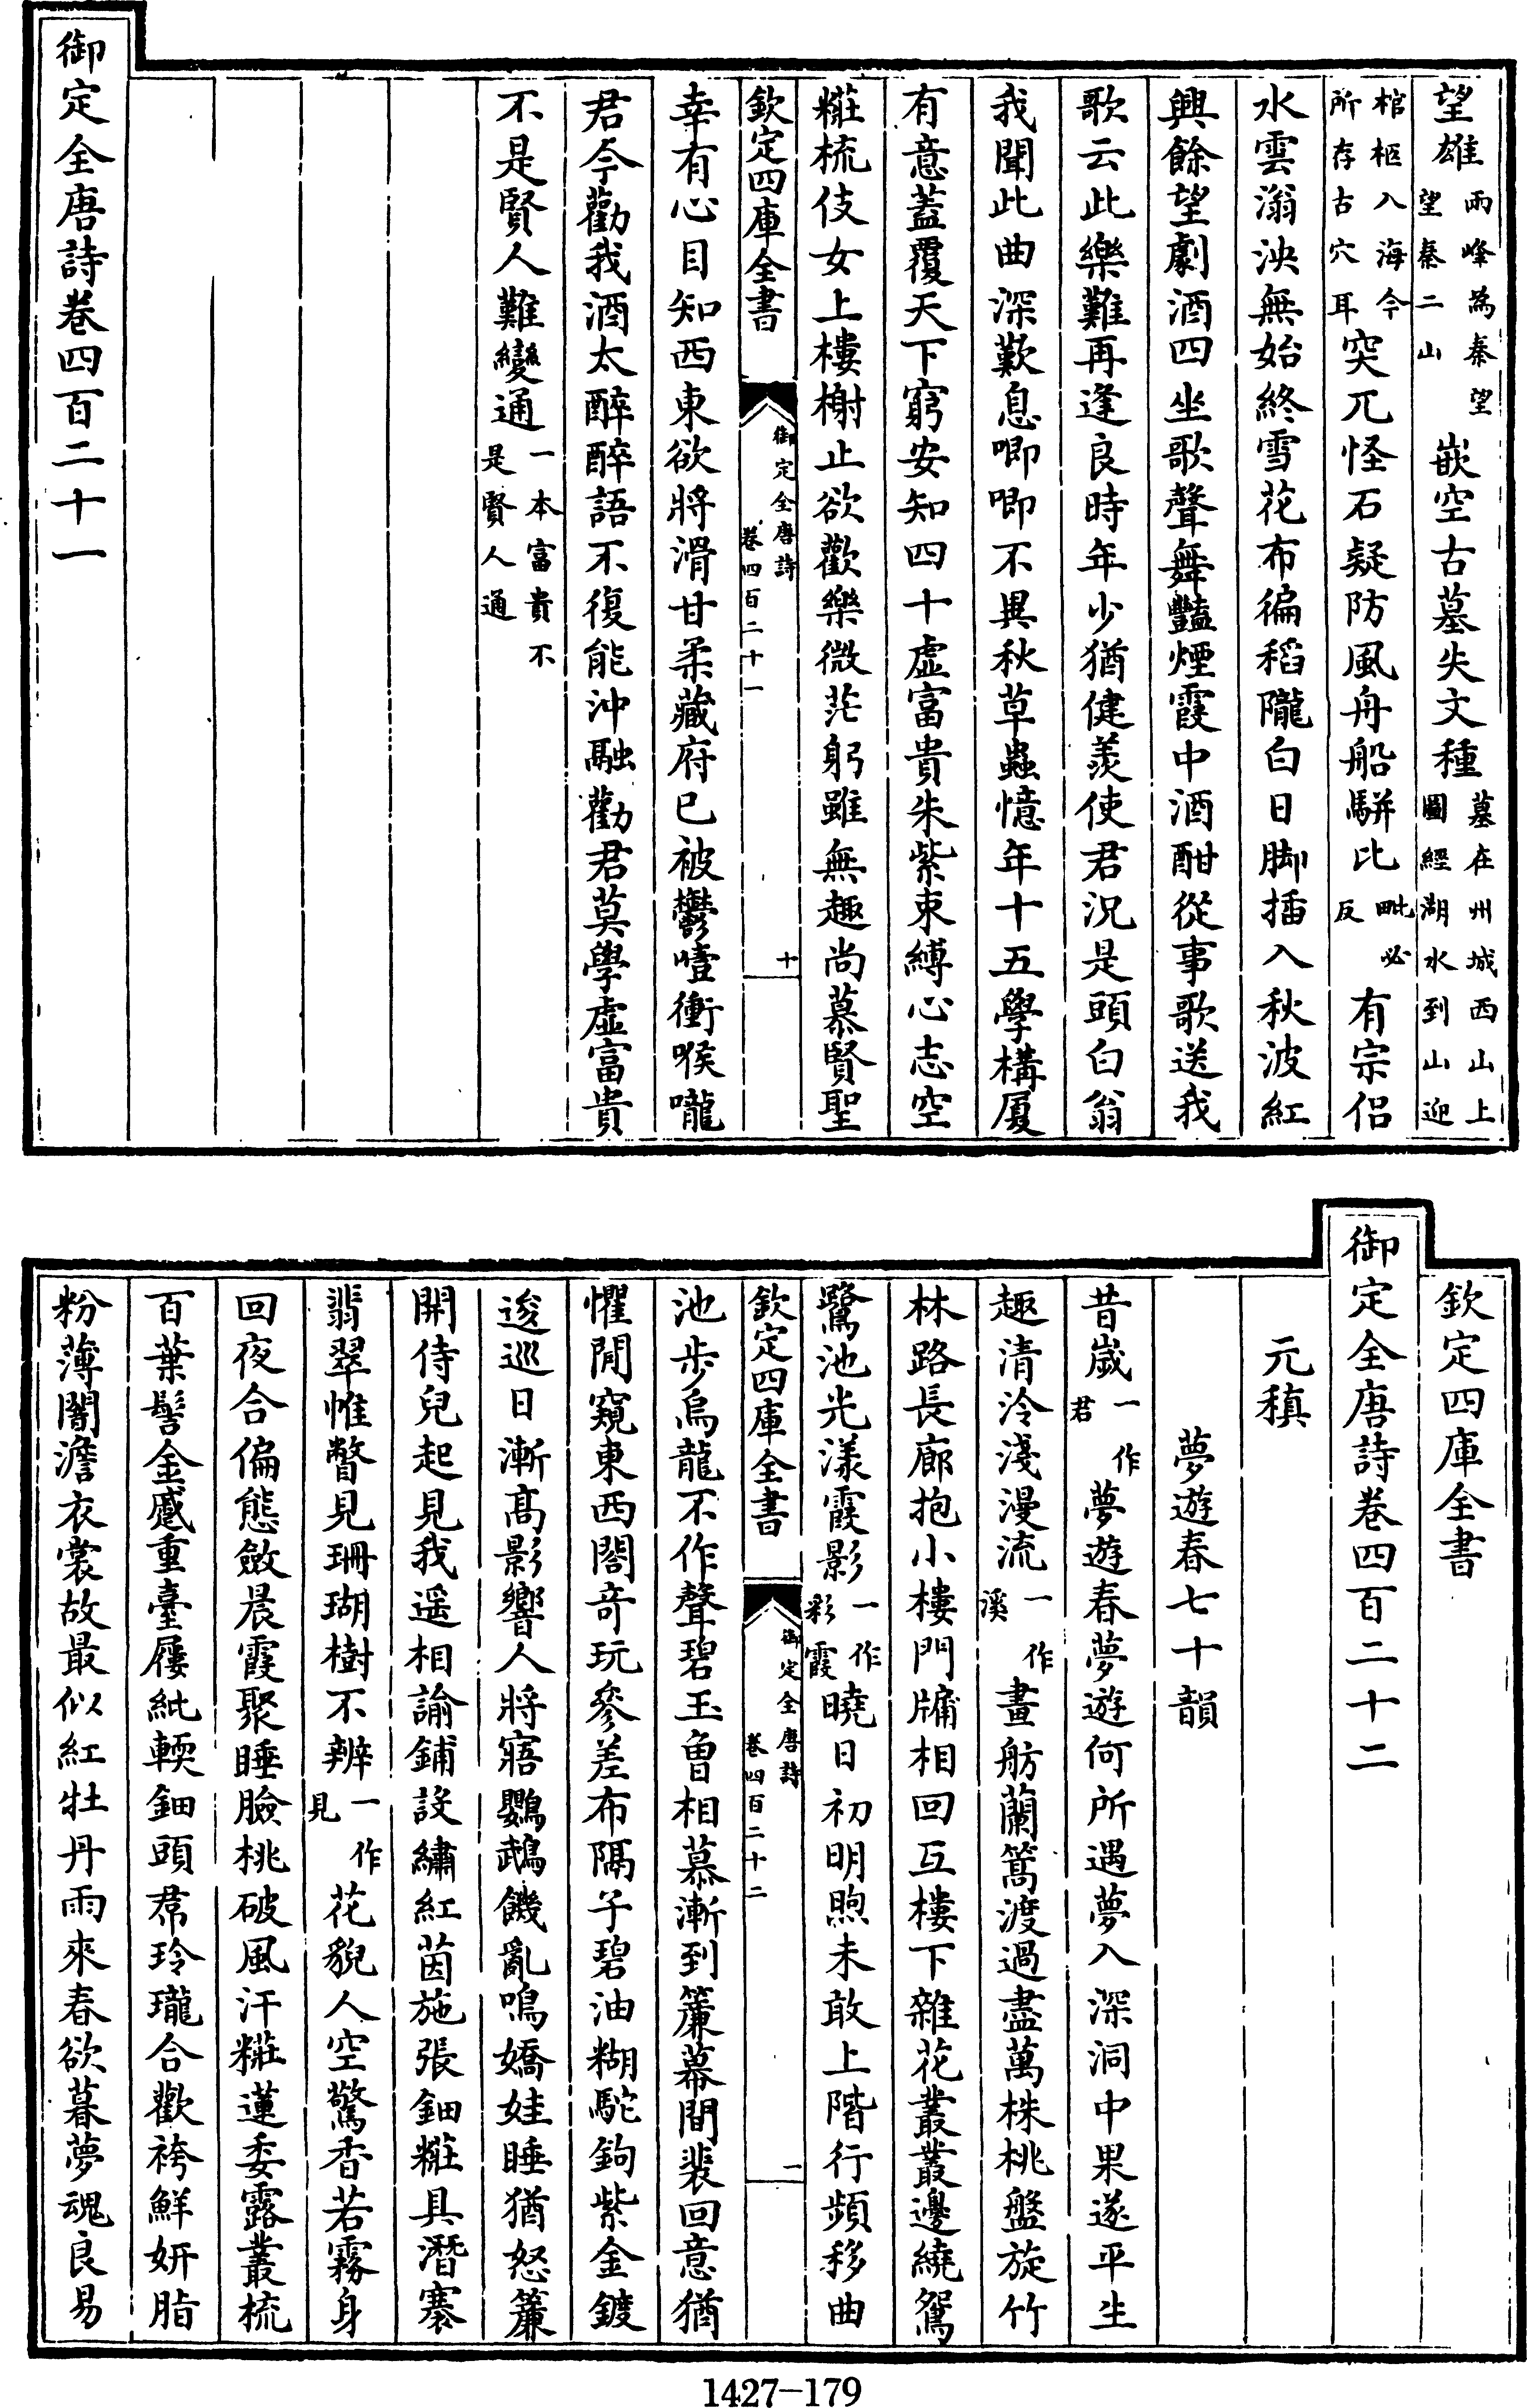 望雄兩峰為秦望望秦二山嵌空古墓失文種墓在州城西山上圖經湖水到山迎
棺柩入海今所存古穴耳突兀怪石疑防風舟船駢比毗必反有宗侣
水雲滃泱無始終雪花布徧稻隴白日脚插入秋波紅
興餘望劇酒四坐歌聲舞豔煙霞中酒酣從事歌送我
歌云此樂難再逢良時年少猶健羨使君況是頭白翁
我聞此曲深歎息唧唧不異秋草蟲憶年十五學構厦
有意蓋覆天下窮安知四十虛富貴朱紫束縛心志空
糚梳伎女上樓榭止欲歡樂微茫躬雖無趣尚慕賢聖
欽定四庫全書
御定全唐詩
卷四百二十一
十
幸有心目知西東欲將滑甘柔藏府已被鬱噎衝喉嚨
君今勸我酒太醉醉語不復能沖融勸君莫學虛富貴
不是賢人難變通一本富貴不是賢人通
御定全唐詩卷四百二十一
欽定四庫全書
御定全唐詩卷四百二十二
元稹
夢遊春七十韻
昔歲一作君夢遊春夢遊何所遇夢入深洞中果遂平生
趣清泠淺漫流一作溪畫舫蘭篙渡過盡萬株桃盤旋竹
林路長廊抱小樓門牖相回互樓下雜花叢叢邊繞鴛
鷺池光漾霞影一作彩霞曉日初明煦未敢上階行頻移曲
欽定四庫全書
御定全唐詩
卷四百二十二
一
池步烏龍不作聲碧玉曾相慕漸到簾幕間裴回意猶
懼閒窺東西閤奇玩參差布隔子碧油糊駝鉤紫金鍍
逡巡日漸高影響人將寤鸚鵡饑亂鳴嬌娃睡猶怒簾
開侍兒起見我遥相諭鋪設繡紅茵施張鈿糚具潛褰
翡翠帷瞥見珊瑚樹不辨一作見花貌人空驚香若霧身
回夜合偏態斂晨霞聚睡臉桃破風汗糚蓮委露叢梳
百葉髻金蹙重臺屨紕軟鈿頭帬玲瓏合歡袴鮮妍脂
粉薄闇澹衣裳故最似紅牡丹雨來春欲暮夢魂良易
1427-179